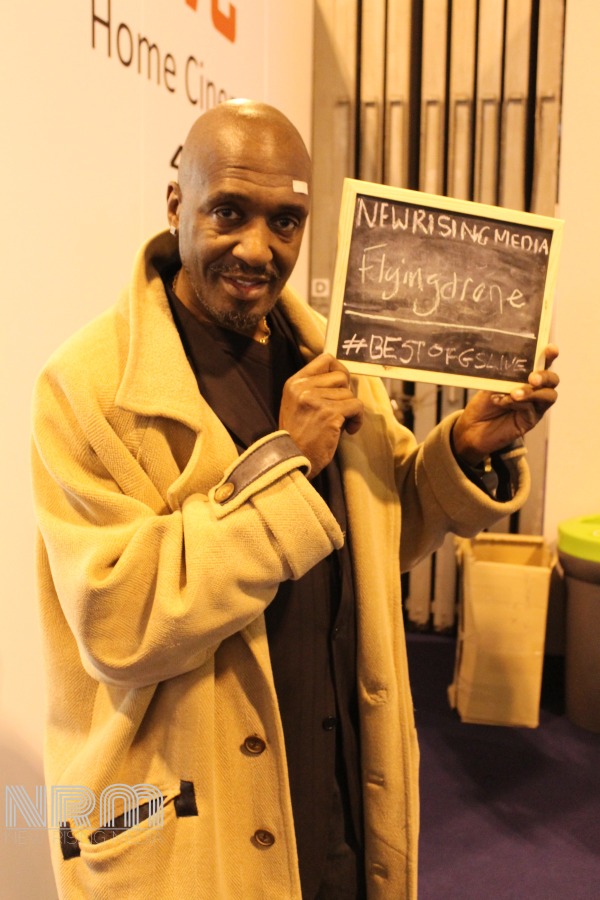 Home Cine
4
NEWRISING MEDIA
Flyingdrone
#BESTOFGSLIVE
NRM